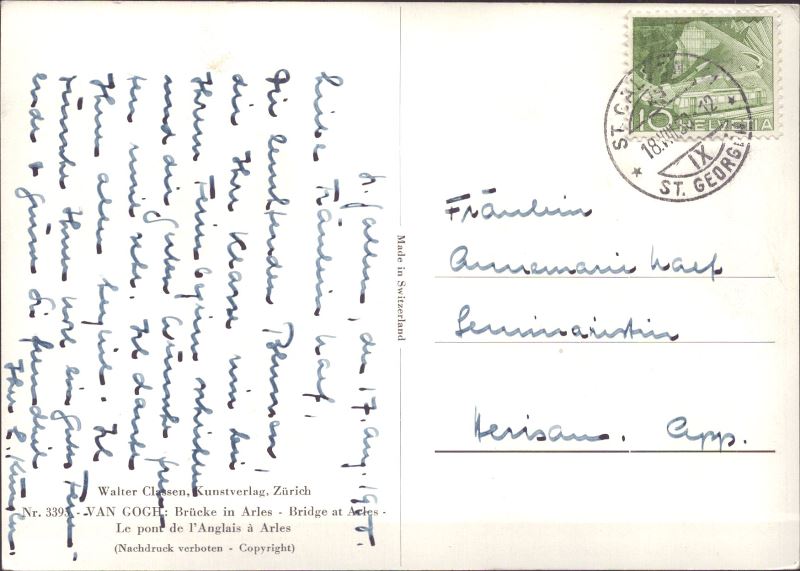 St. Gallen, den 17. Aug. 195
Liebes Fräulein Walf!
Die leuchtenden Blumen,
die Ihre Klasse mir bei
Ihrem Ferienbeginn schickten
und die guten Wünsche freu-
ten mich sehr. Ich danke
Ihnen allen herzlich. Ich
wünsche Ihnen noch ein gutes Ferien-
ende & grüsse Sie freundlich
Ihre
Walter Classen, Kunstverlag, Zürich
Nr. 3393 - VAN GOGH: Brücke in Arles - Bridge at Arles -
Le pont de l'Anglais à Arles
(Nachdruck verboten - Copyright)
Made in Switzerland
10 HELVETIA
ST. GALLEN
18.VIII.50 - 12
IX
ST. GEORGEN
Fräulein
Annemarie Walf
Seminaristin
Herisau. App.